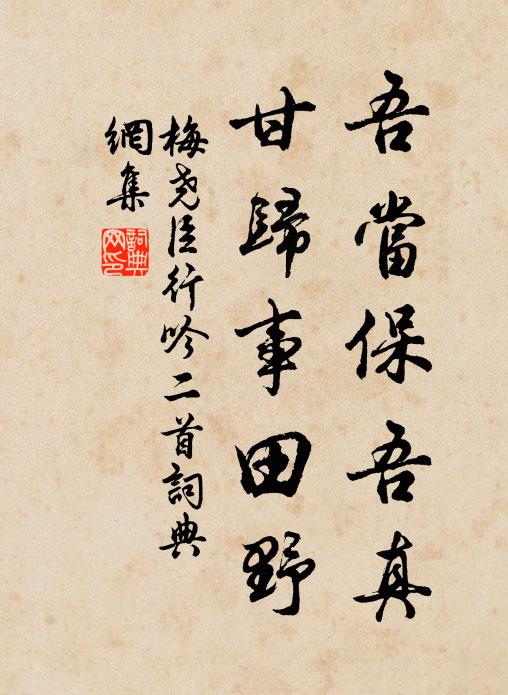 吾當保吾真
甘歸事田野
梅尧臣行吟二首詞典
網集
詞典网印